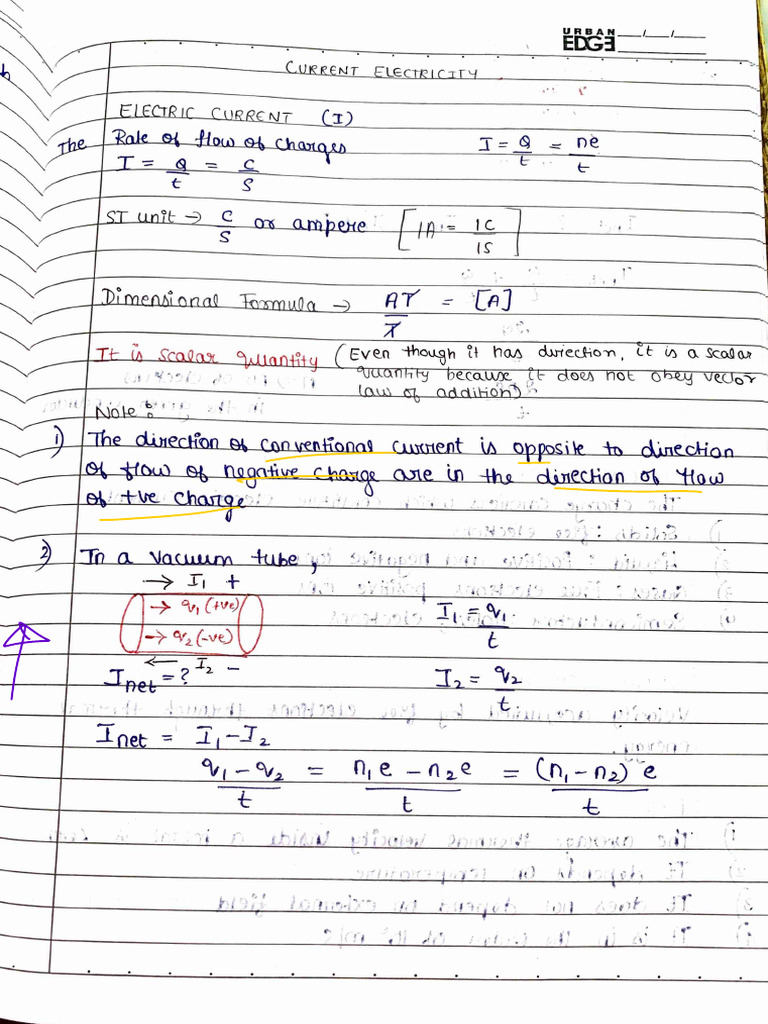 URBAN
EDGE __/__/__
CURRENT ELECTRICITY
ELECTRIC CURRENT (I)
The Rate of flow of charges I = Q/t = ne/t
I = Q/t = C/S
SI unit → C/S or ampere [1A = 1C/1S]
Dimensional Formula → AT/T = [A]
It is scalar quantity (Even though it has direction, it is a scalar
quantity because it does not obey vector
law of addition)
Note :
1) The direction of conventional current is opposite to direction
of flow of negative charge are in the direction of flow
of +ve charge
2) In a vacuum tube,
→ I₁ +
→ q₁ (+ve)
I₁ = q₁/t
→ q₂ (-ve)
← I₂ -
I net = ? I₂ = q₂/t
I net = I₁ - I₂
q₁ - q₂/t = n₁e - n₂e/t = (n₁ - n₂) e/t